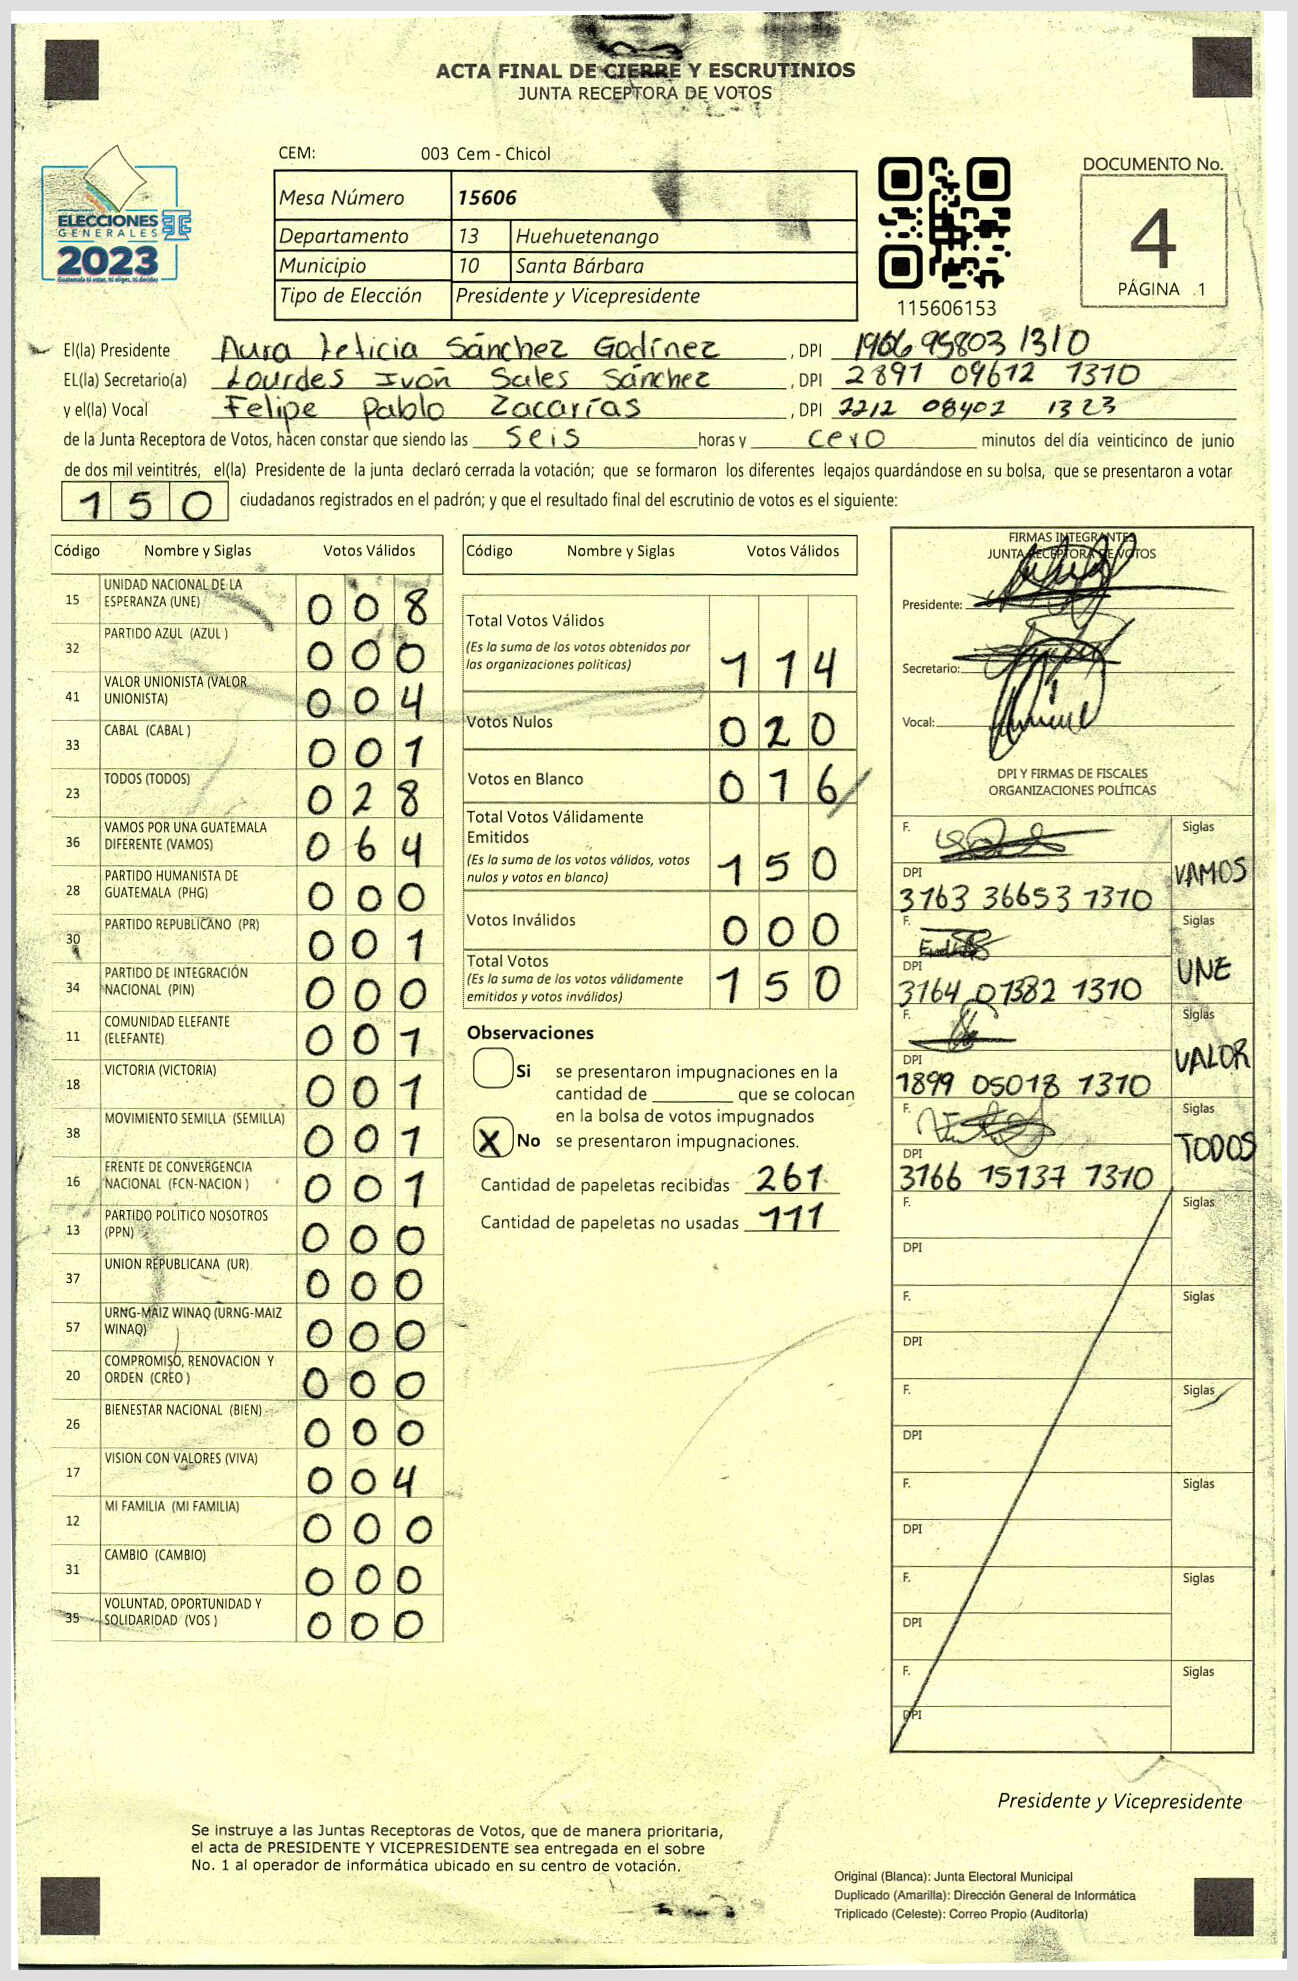 ACTA FINAL DE CIERRE Y ESCRUTINIOS
JUNTA RECEPTORA DE VOTOS
CEM: 003 Cem - Chicol
Mesa Número 15606
Departamento 13 Huehuetenango
Municipio 10 Santa Bárbara
Tipo de Elección Presidente y Vicepresidente
ELECCIONES
GENERALES
2023
TSE
115606153
DOCUMENTO No.
4
PÁGINA 1
El(la) Presidente Aura Leticia Sánchez Godínez, DPI 1966 95803 1310
EL(la) Secretario(a) Lourdes Ivoñ Sales Sánchez, DPI 2891 09612 1310
y el(la) Vocal Felipe Pablo Zacarías, DPI 2212 08402 1323
de la Junta Receptora de Votos, hacen constar que siendo las seis horas y cero minutos del día veinticinco de junio
de dos mil veintitrés, el(la) Presidente de la junta declaró cerrada la votación; que se formaron los diferentes legajos guardándose en su bolsa, que se presentaron a votar
150 ciudadanos registrados en el padrón; y que el resultado final del escrutinio de votos es el siguiente:
Código Nombre y Siglas Votos Válidos
15 UNIDAD NACIONAL DE LA ESPERANZA (UNE) 008
32 PARTIDO AZUL (AZUL ) 000
41 VALOR UNIONISTA (VALOR UNIONISTA) 004
33 CABAL (CABAL ) 001
23 TODOS (TODOS) 028
36 VAMOS POR UNA GUATEMALA DIFERENTE (VAMOS) 064
28 PARTIDO HUMANISTA DE GUATEMALA (PHG) 000
30 PARTIDO REPUBLICANO (PR) 001
34 PARTIDO DE INTEGRACIÓN NACIONAL (PIN) 000
11 COMUNIDAD ELEFANTE (ELEFANTE) 001
18 VICTORIA (VICTORIA) 001
38 MOVIMIENTO SEMILLA (SEMILLA) 001
16 FRENTE DE CONVERGENCIA NACIONAL (FCN-NACION ) 001
13 PARTIDO POLITICO NOSOTROS (PPN) 000
37 UNION REPUBLICANA (UR) 000
57 URNG-MAIZ WINAQ (URNG-MAIZ WINAQ) 000
20 COMPROMISO, RENOVACION Y ORDEN (CREO ) 000
26 BIENESTAR NACIONAL (BIEN) 000
17 VISION CON VALORES (VIVA) 004
12 MI FAMILIA (MI FAMILIA) 000
31 CAMBIO (CAMBIO) 000
35 VOLUNTAD, OPORTUNIDAD Y SOLIDARIDAD (VOS ) 000
Código Nombre y Siglas Votos Válidos
Total Votos Válidos
(Es la suma de los votos obtenidos por
las organizaciones políticas) 114
Votos Nulos 020
Votos en Blanco 016
Total Votos Válidamente
Emitidos
(Es la suma de los votos válidos, votos
nulos y votos en blanco) 150
Votos Inválidos 000
Total Votos
(Es la suma de los votos válidamente
emitidos y votos inválidos) 150
Observaciones
Si se presentaron impugnaciones en la
cantidad de ________ que se colocan
en la bolsa de votos impugnados
X No se presentaron impugnaciones.
Cantidad de papeletas recibidas 261
Cantidad de papeletas no usadas 111
FIRMAS INTEGRANTES
JUNTA RECEPTORA DE VOTOS
Presidente:
Secretario:
Vocal:
DPI Y FIRMAS DE FISCALES
ORGANIZACIONES POLÍTICAS
F. Siglas
DPI VAMOS
3163 36653 1310
F. Siglas
DPI UNE
3164 01382 1310
F. Siglas
DPI VALOR
1899 05018 1310
F. Siglas
DPI TODOS
3166 15137 1310
F. Siglas
DPI
F. Siglas
DPI
F. Siglas
DPI
F. Siglas
DPI
F. Siglas
DPI
F. Siglas
DPI
Presidente y Vicepresidente
Se instruye a las Juntas Receptoras de Votos, que de manera prioritaria,
el acta de PRESIDENTE Y VICEPRESIDENTE sea entregada en el sobre
No. 1 al operador de informática ubicado en su centro de votación.
Original (Blanca): Junta Electoral Municipal
Duplicado (Amarilla): Dirección General de Informática
Triplicado (Celeste): Correo Propio (Auditoría)